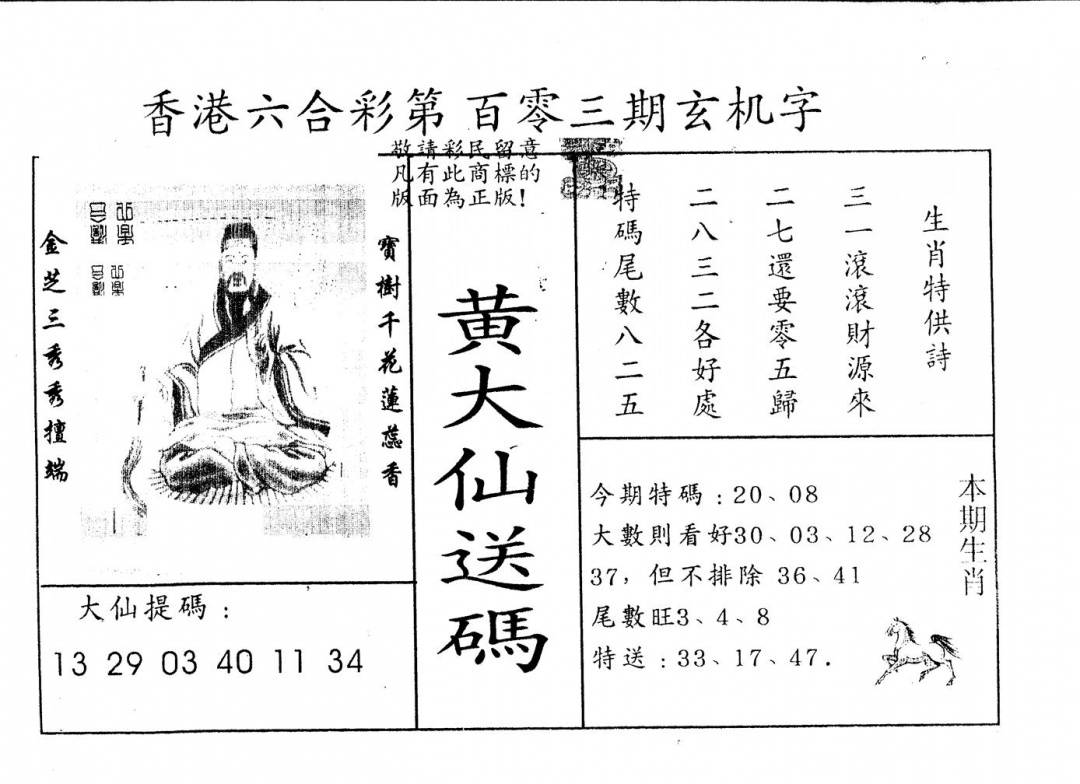 香港六合彩第 百零三期玄机字
敬請彩民留意
凡有此商標的
版面為正版!
金芝三秀秀壇端
寶樹千花蓮蕊香
大仙提碼：
13 29 03 40 11 34
黄大仙送碼
生肖特供詩
三一滾滾財源來
二七還要零五歸
二八三二各好處
特碼尾數八二五
本期生肖
今期特碼：20、08
大數則看好30、03、12、28
37，但不排除 36、41
尾數旺3、4、8
特送：33、17、47.